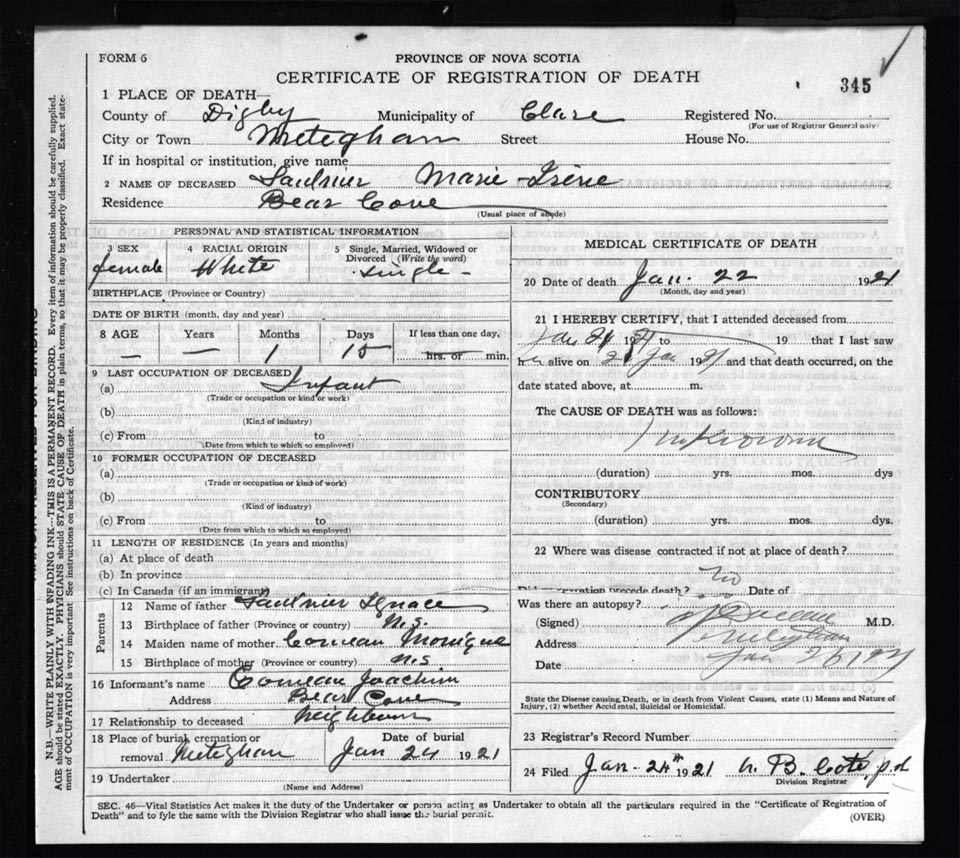 FORM 6
PROVINCE OF NOVA SCOTIA
CERTIFICATE OF REGISTRATION OF DEATH
345
1 PLACE OF DEATH—
County of Digby Municipality of Clare Registered No.
(For use of Registrar General only)
City or Town Meteghan Street House No.
If in hospital or institution, give name
2 NAME OF DECEASED Saulnier Marie-Irène
Residence Bear Cove
(Usual place of abode)
PERSONAL AND STATISTICAL INFORMATION
3 SEX 4 RACIAL ORIGIN 5 Single, Married, Widowed or
Divorced (Write the word)
female White single
BIRTHPLACE (Province or Country)
DATE OF BIRTH (month, day and year)
8 AGE Years Months Days If less than one day,
— — 1 15 hrs. or min.
9 LAST OCCUPATION OF DECEASED
(a) Infant
(Trade or occupation or kind of work)
(b)
(Kind of industry)
(c) From to
(Date from which to which so employed)
10 FORMER OCCUPATION OF DECEASED
(a)
(Trade or occupation or kind of work)
(b)
(Kind of industry)
(c) From to
(Date from which to which so employed)
11 LENGTH OF RESIDENCE (In years and months)
(a) At place of death
(b) In province
(c) In Canada (if an immigrant)
Parents
12 Name of father Saulnier Ignace
13 Birthplace of father (Province or country) N.S.
14 Maiden name of mother Comeau Monique
15 Birthplace of mother (Province or country) N.S.
16 Informant's name Comeau Joachim
Address Bear Cove
17 Relationship to deceased Neighbour
18 Place of burial, cremation or Date of burial
removal Meteghan Jan 24 1921
19 Undertaker
(Name and Address)
MEDICAL CERTIFICATE OF DEATH
20 Date of death Jan. 22 1921
(Month, day and year)
21 I HEREBY CERTIFY, that I attended deceased from
Jan 21 1921 to 19 that I last saw
h alive on 21 Jan 1921 and that death occurred, on the
date stated above, at m.
The CAUSE OF DEATH was as follows:
Unknown
(duration) yrs. mos. dys
CONTRIBUTORY
(Secondary)
(duration) yrs. mos. dys.
22 Where was disease contracted if not at place of death?
no
precede death? Date of
Was there an autopsy?
(Signed) M.D.
Address Meteghan
Date Jan
State the Disease causing Death, or in death from Violent Causes, state (1) Means and Nature of
Injury, (2) whether Accidental, Suicidal or Homicidal.
23 Registrar's Record Number
24 Filed Jan-24th 1921 B. Cote
Division Registrar
SEC. 46—Vital Statistics Act makes it the duty of the Undertaker or person acting as Undertaker to obtain all the particulars required in the "Certificate of Registration of
Death" and to fyle the same with the Division Registrar who shall issue the burial permit.
(OVER)
N.B.—WRITE PLAINLY WITH UNFADING INK—THIS IS A PERMANENT RECORD. Every item of information should be carefully supplied.
AGE should be stated EXACTLY. PHYSICIANS should STATE CAUSE OF DEATH in plain terms, so that it may be properly classified. Exact state-
ment of OCCUPATION is very important. See instructions on back of Certificate.